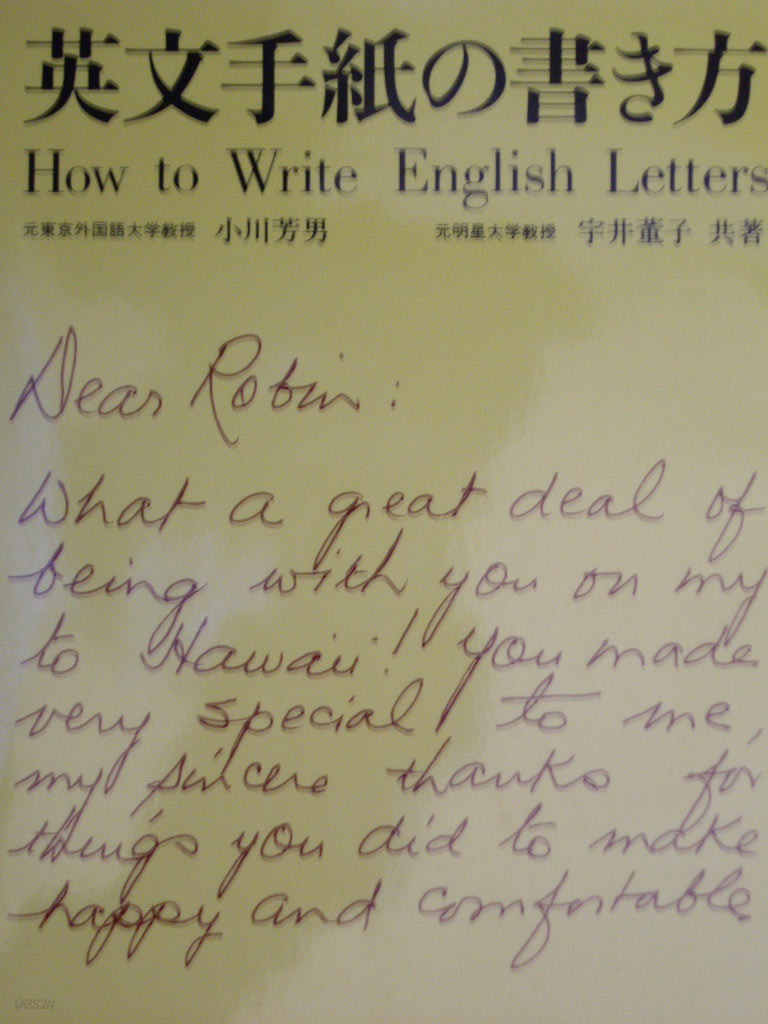 英文手紙の書き方
How to Write English Letters
元東京外国語大学教授 小川芳男 元明星大学教授 宇井菫子 共著
Dear Robin:
What a great deal of
being with you on my
to Hawaii! You made
very special to me,
my sincere thanks for
things you did to make
happy and comfortable
yes24